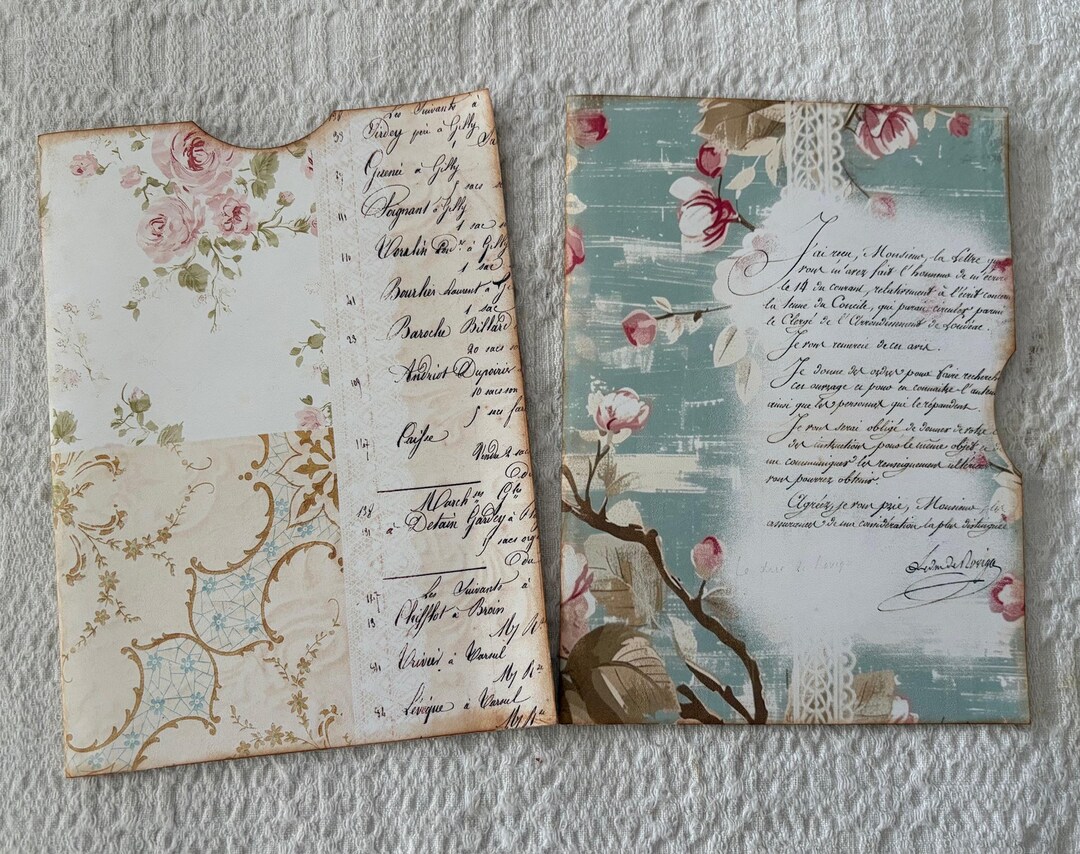 Les Suivants à
39 Tirdey père à Gilly
1 sa
Grenié à Gilly
5 sacs
Poignant à Gilly
1 sac
à Gilly
1 sac
Bourlier Laurent à
1 sac
Baroche Billard
20 sacs
Andriot Dupoirix
10 sacs
5 sacs
Caisse
138
131 à Detain Gardey à
5 sacs
Les Suivants à
Chifflot à Broin
M. R.
à Vareul
M. R.
Lévêque à Vareul
M. R.
J'ai reçu, Monsieur, la Lettre que
vous m'avez fait l'honneur de m'écrire
le 14 du courant, relativement à l'écrit concern
la tenue du Concile, qui parait circuler parmi
le Clergé de l'Arrondissement de Louviers.
Je vous remercie de cet avis.
Je donne des ordres pour faire rechercher
cet ouvrage et pour en connaître l'auteur
ainsi que les personnes qui le répandent.
Je vous serai obligé de donner de votre
des instructions pour le même objet et
me communiquer les renseignemens ultérieurs
vous pourrez obtenir.
Agréez, je vous prie, Monsieur, les
assurances de ma considération la plus distinguée
Le duc de Rovigo